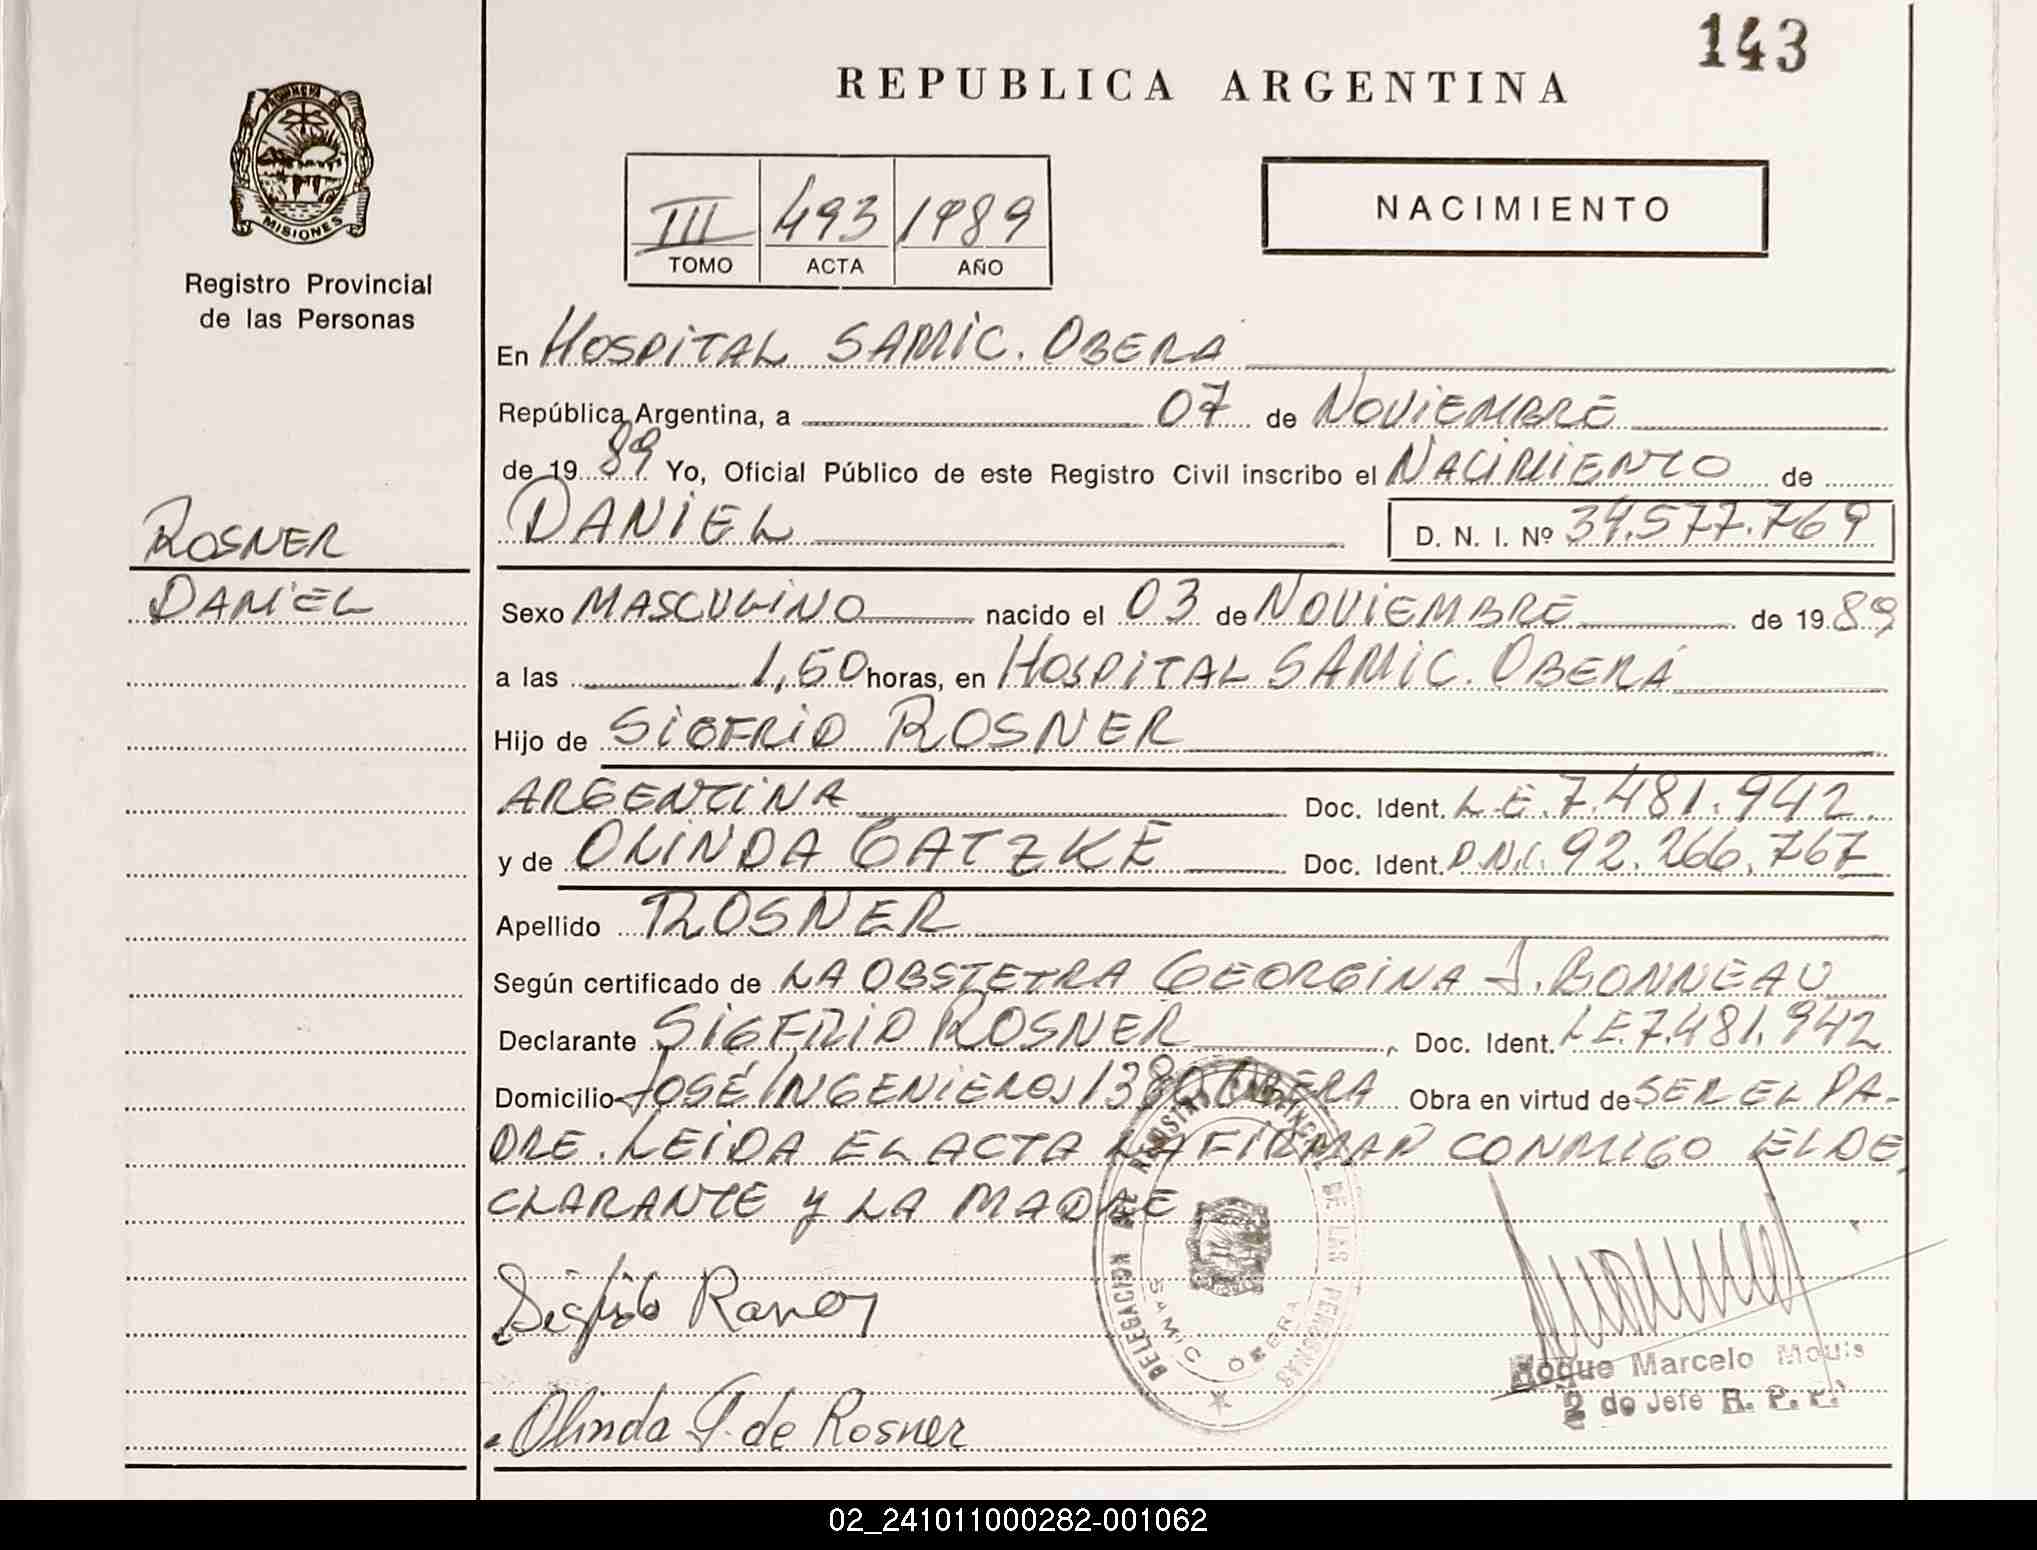 143
REPUBLICA ARGENTINA
PROVINCIA DE
MISIONES
Registro Provincial
de las Personas
III 493 1989
TOMO ACTA AÑO
NACIMIENTO
En HOSPITAL SAMIC. OBERA
República Argentina, a 07 de NOVIEMBRE
de 19 89 Yo, Oficial Público de este Registro Civil inscribo el NACIMIENTO de
DANIEL D. N. I. Nº 34.577.769
ROSNER
DANIEL
Sexo MASCULINO nacido el 03 de NOVIEMBRE de 19 89
a las 1,50 horas, en HOSPITAL SAMIC. OBERÁ
Hijo de SIGFRID ROSNER
ARGENTINA Doc. Ident. L.E. 7.481.942.
y de OLINDA GATZKE Doc. Ident. D.N.I. 92.266.767
Apellido ROSNER
Según certificado de LA OBSTETRA GEORGINA J. BONNEAU
Declarante SIGFRID ROSNER, Doc. Ident. L.E. 7.481.942
Domicilio JOSÉ INGENIEROS 1380 OBERA Obra en virtud de SER EL PA-
DRE. LEIDA EL ACTA LA FIRMAN CONMIGO EL DE
CLARANTE Y LA MADRE
DELEGACION DEL REGISTRO PROVINCIAL DE LAS PERSONAS
SAMIC OBERA
Olinda G. de Rosner
Roque Marcelo
2do Jefe R. P. P.
02_241011000282-001062